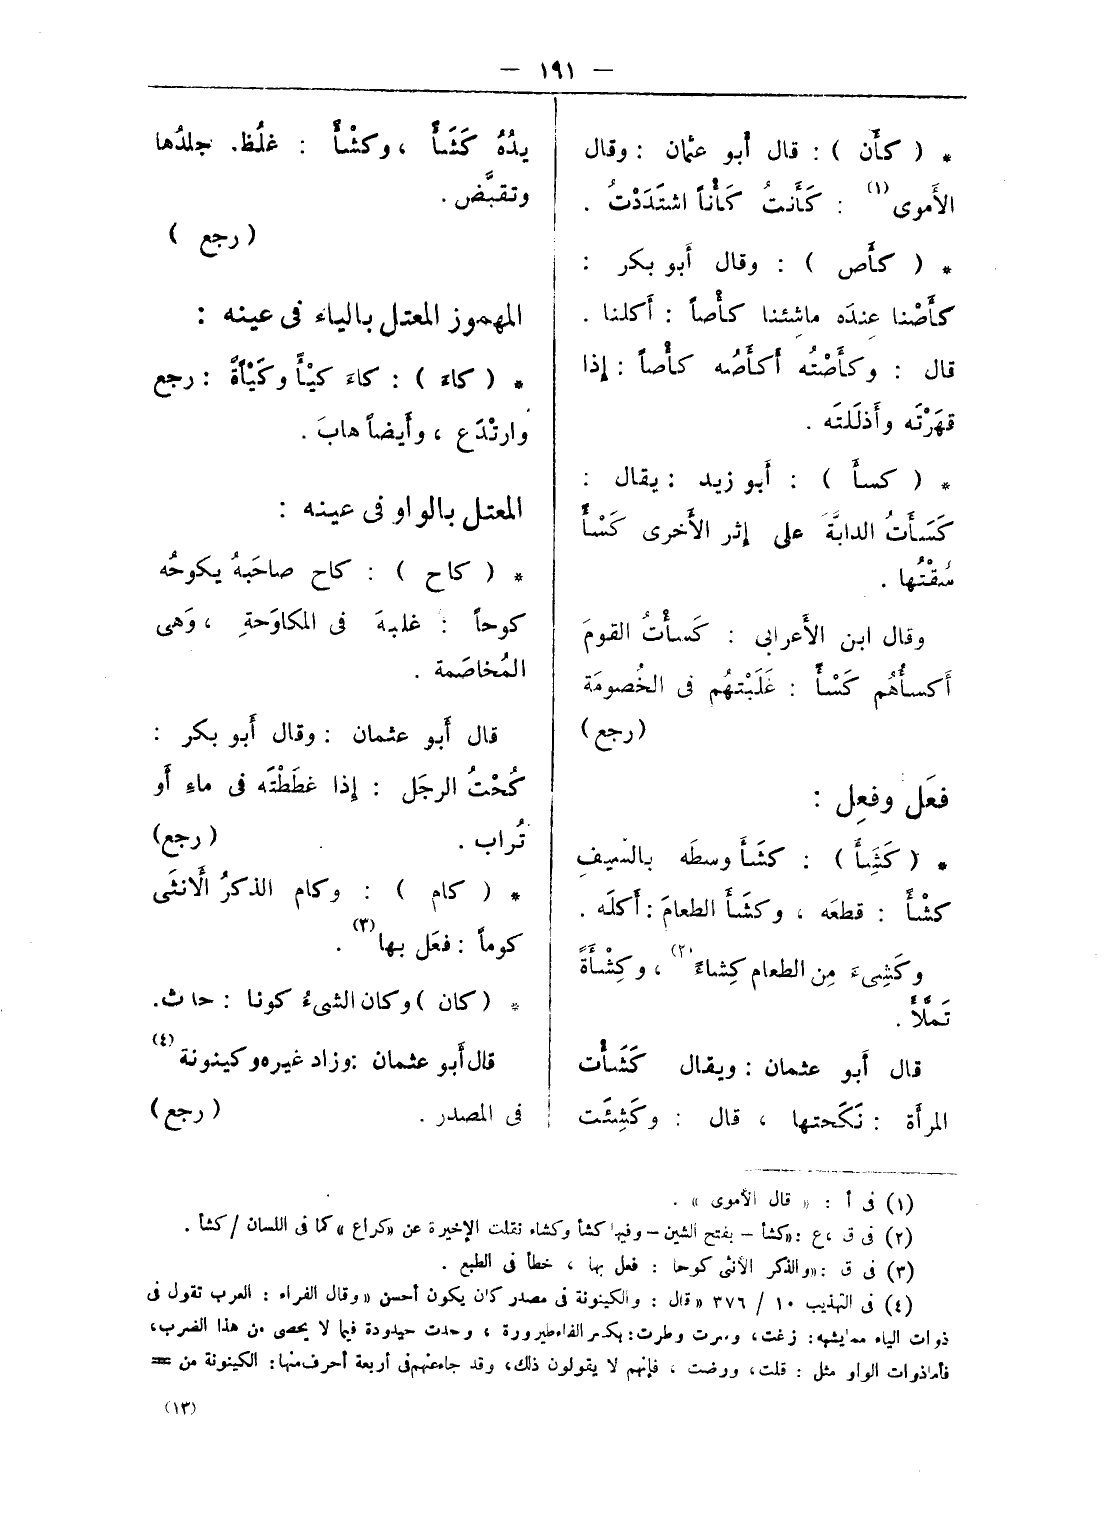 — ١٩١ —
* ( كأَن ) : قال أبو عثمان : وقال
الأَموى(١) : كَأَنتُ كَأْناً اشتَدَدْتُ .
* ( كأَص ) : وقال أبو بكر :
كأَصْنا عِندَه ماشِئنا كأْصاً : أكلنا .
قال : وكأَصْتُه أكأَصُه كأْصاً : إذا
قهَرْتَه وأَذلَلتَه .
* ( كسأ ) : أبو زيد : يقال :
كَسَأتُ الدابَّةَ على إثر الأَخرى كَسْأً
سُقْتُها .
وقال ابن الأَعرابى : كَسأْتُ القومَ
أكسأُهُم كَسْأً : غَلَبْتهُم فى الخُصومَة
(رجع)
فعَل وفعِل :
* ( كَثِأَ ) : كشَأَ وسطَه بالسَّيفِ
كشْأً : قطعَه ، وكشَأَ الطعامَ : أكلَه .
وكَشِىءَ مِن الطعام كِشاءً(٢) ، وكِشْأَةً
تَملَّأَ .
قال أبو عثمان : ويقال كَشَأْت
المرأَة : نَكَحتها ، قال : وكَشِئَت
يدُهُ كَشَأً ، وكشْأً : غلُظ. جلدُها
وتقبَّض .
( رجع )
المهموز المعتل بالياء فى عينه :
* ( كاءَ ) : كاءَ كيْأً وكَيْأَةً : رجع
وارتْدَع ، وأَيضاً هابَ .
المعتل بالواو فى عينه :
* ( كاح ) : كاح صاحَبهُ يكوحُه
كوحاً : غلبهَ فى المكاوَحةِ ، وَهى
المُخاصَمة .
قال أبو عثمان : وقال أبو بكر :
كُحْتُ الرجَل : إذا غطَطْتَه فى ماءِ أَو
تُراب . (رجع)
* ( كام ) : وكام الذكرُ الأُنثَى
كوماً : فعَل بها(٣) .
* ( كان ) وكان الشىءُ كونا : حاث.
قال أبو عثمان : وزاد غيره وكينونة(٤)
فى المصدر . (رجع)
(١) فى أ : « قال الأموى » .
(٢) فى ق ،ع : «كشأ – بفتح الشين – وفيها كشأ وكشاء نقلت الإخيرة عن «كراع » كما فى اللسان /كشأ .
(٣) فى ق : «والذكر الأنثى كوحا : فعل بها ، خطأ فى الطبع .
(٤) فى التهذيب ١٠ / ٣٧٦ «قال : والكينونة فى مصدر كان يكون أحسن «وقال الفراء : العرب تقول فى
ذوات الياء مما يشبه : زغت، وسرت وطرت : بكسر الفاء طيرورة ، وحدت حيدودة فيما لا يحصى من هذا الضرب،
فأما ذوات الواو مثل : قلت، ورضت ، فإنهم لا يقولون ذلك، وقد جاء عنهم فى أربعة أحرف منها : الكينونة من =
(١٣)